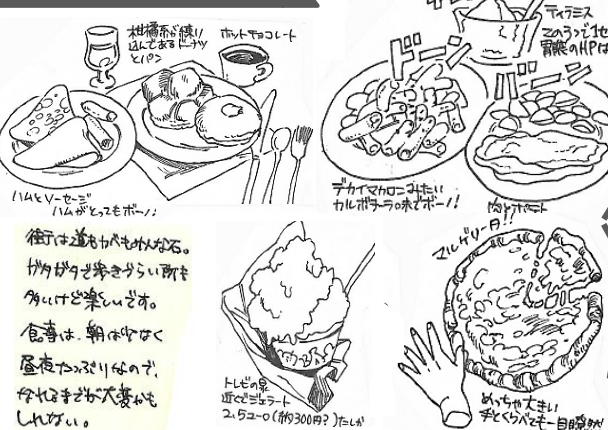 柑橘系が練り
込んであるドーナツ
とパン
ホットチョコレート
ハムとソーセージ
ハムがとってもボーノ!
ティラミス
この3つで1セ
胃袋のHPは
ドーン
ドーン
デカイマカロニみたい
カルボナーラ味でボーノ!
肉とポテト
街は道もカベもみんな石。
ガタガタで歩きづらい所も
多いけど楽しいです。
食事は、朝は少なく
昼夜たっぷりなので、
なれるまでが大変かも
しれない。
トレビの泉
近くでジェラート
2.5ユーロ(約300円?)だしか
マルゲリータ!!
めっちゃ大きい
手とくらべても一目瞭